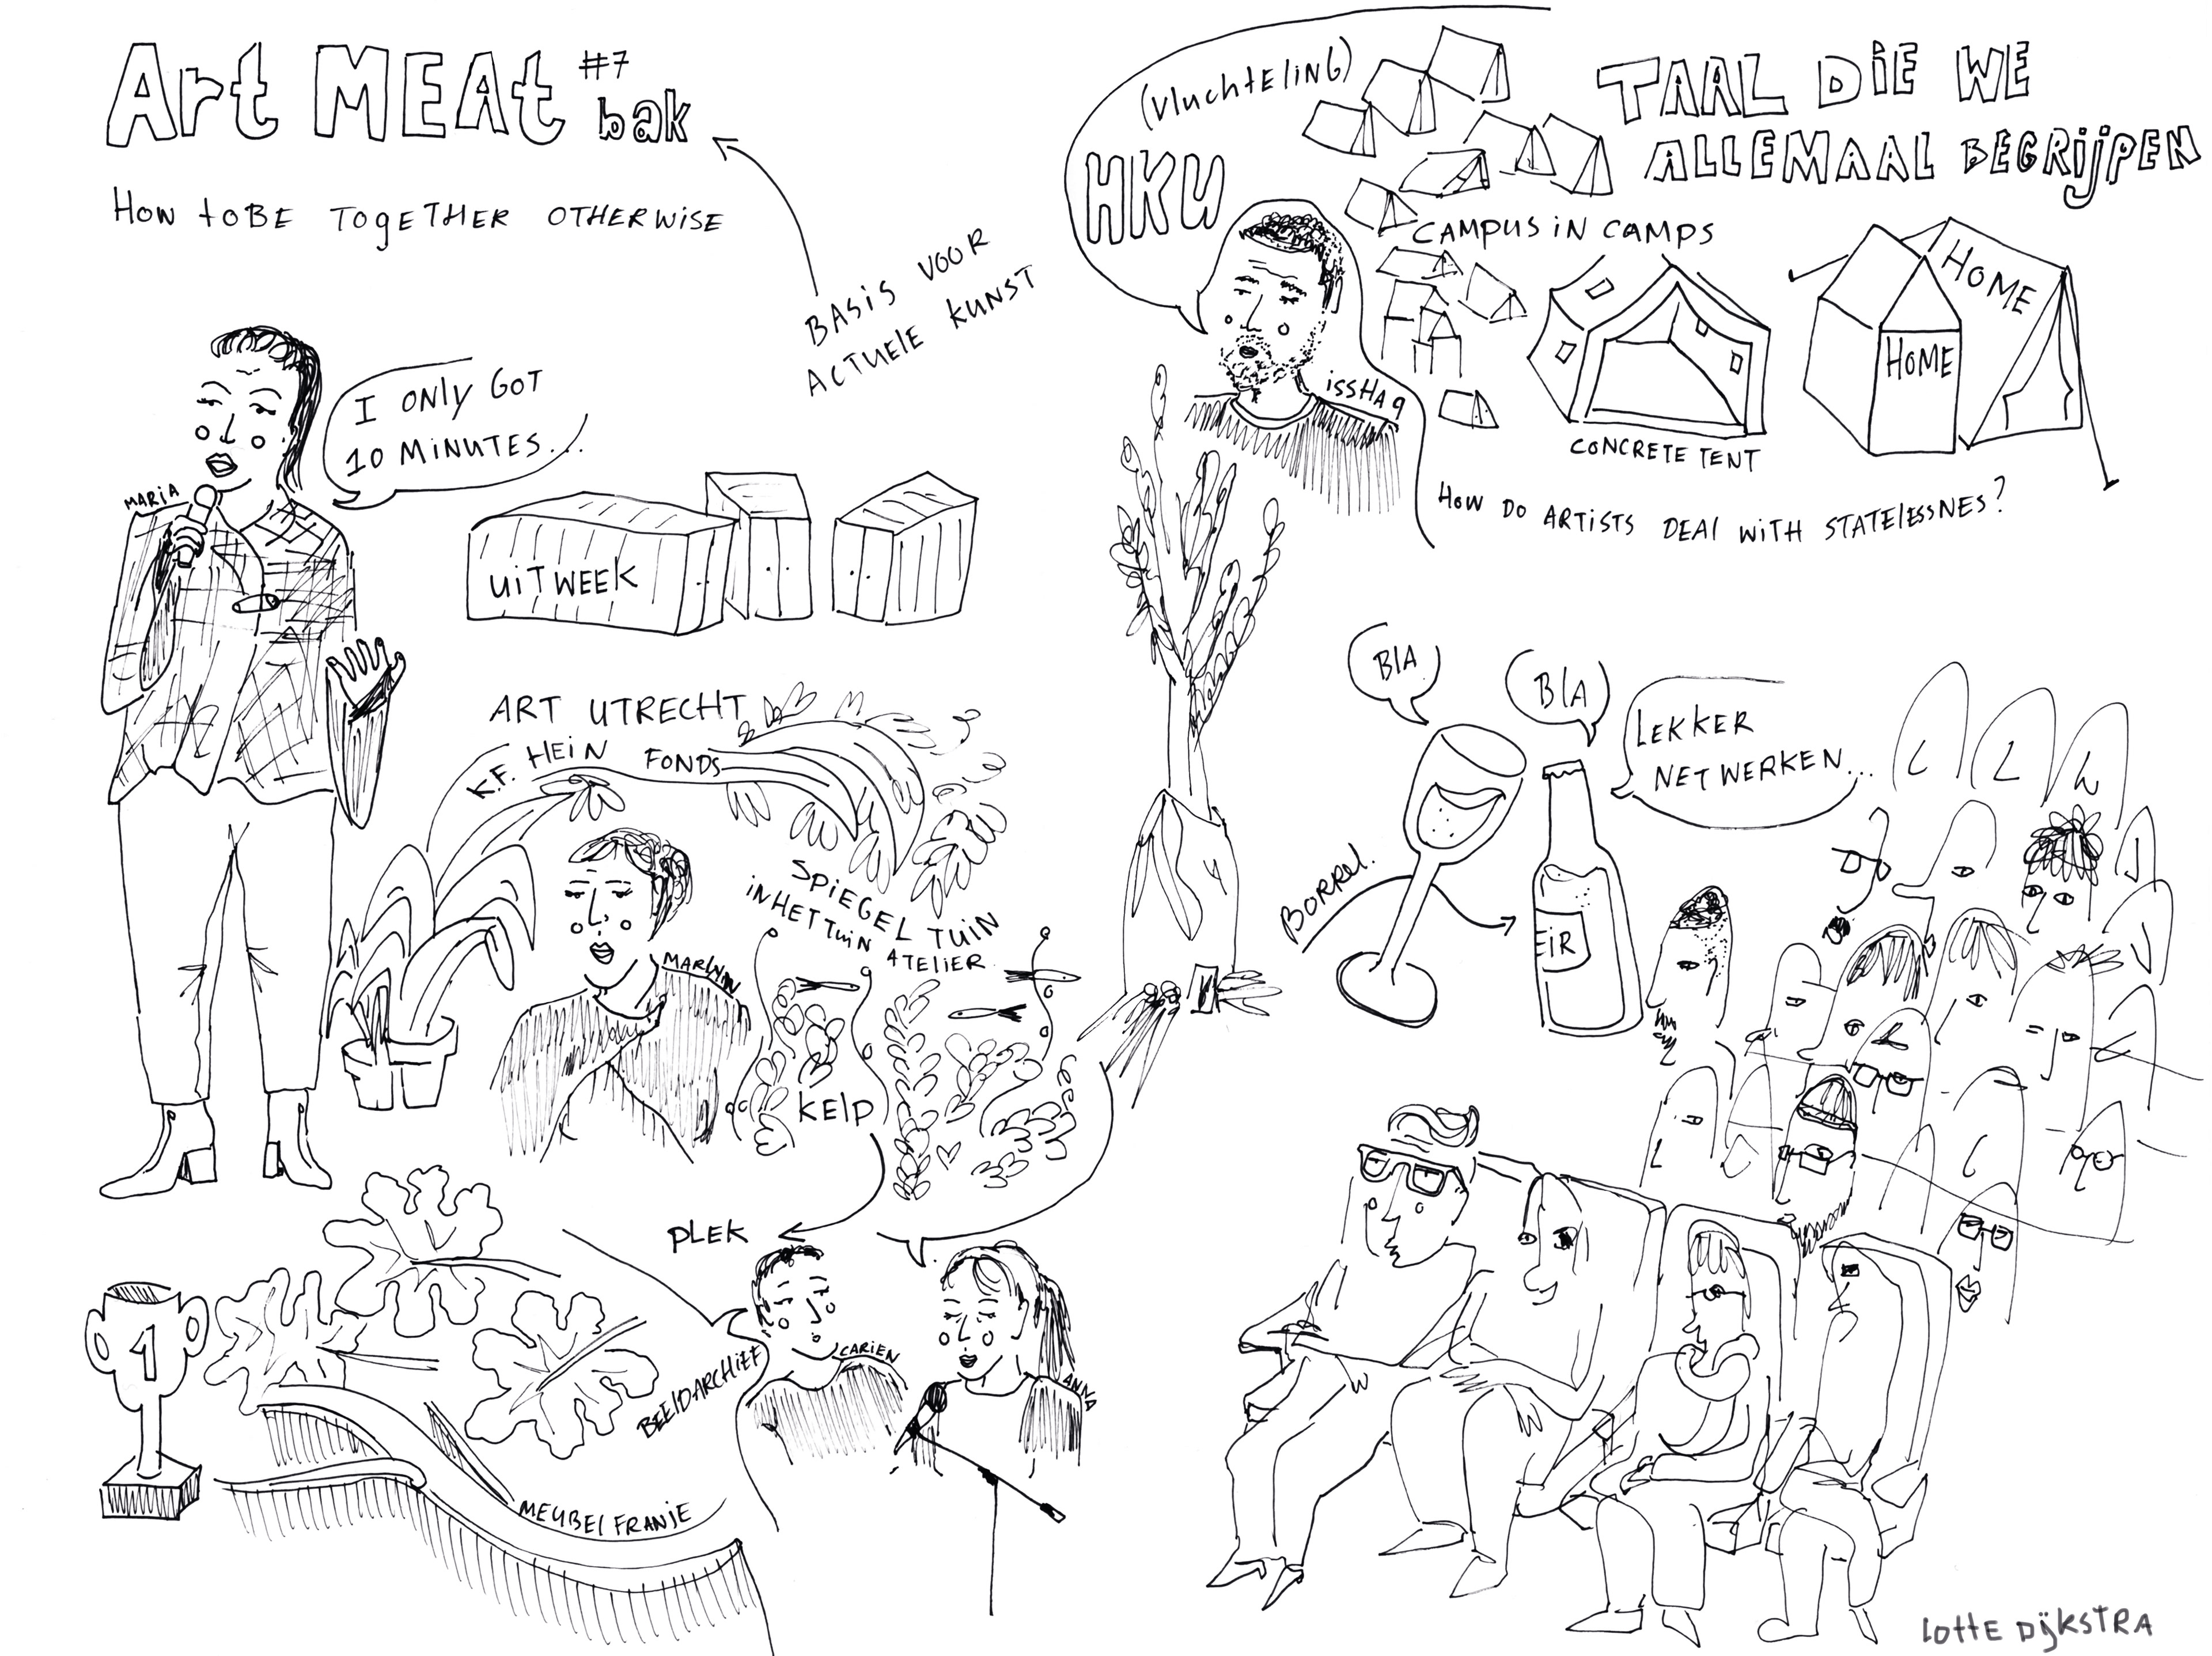 Art MEAt #7
bak
HOW toBE TOgETHER OTHERWISE
BASIS VOOR
ACTUELE KUNST
I ONly GOT
10 MINUTES...
MARIA
UITWEEK
ART UTRECHT
K.F. HEIN FONDS
SPIEGEL TUIN
IN HET TUIN ATELIER
KELP
PLEK
CARIEN
ANNA
BEELDARCHIEF
1
MEUBELFRANJE
(VluchtELING)
HKU
TAAL DIE WE
ALLEMAAL BEGRIJPEN
CAMPUS IN CAMPS
ISSHAq
HOME
HOME
CONCRETE TENT
HOW DO ARTISTS DEAl WITH STATElESSNES?
BlA
BlA
LEKKER
NETWERKEN...
BORREl.
EIR
LOttE DIJKSTRA